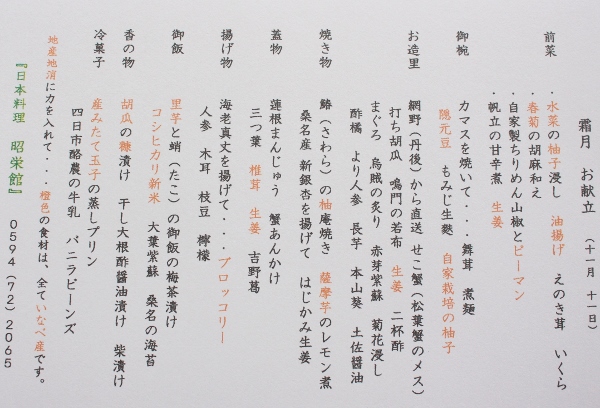 霜月　お献立　（十一月　十一日）
前菜
・水菜の柚子浸し　油揚げ　えのき茸　いくら
・春菊の胡麻和え
・自家製ちりめん山椒とピーマン
・帆立の甘辛煮　生姜
御椀
カマスを焼いて．．．舞茸　煮麺
隠元豆　もみじ生麩　自家栽培の柚子
お造里
網野（丹後）から直送　せこ蟹（松葉蟹のメス）
打ち胡瓜　鳴門の若布　生姜　二杯酢
まぐろ　烏賊の炙り　赤芽紫蘇　菊花浸し
酢橘　より人参　長芋　本山葵　土佐醤油
焼き物
鰆（さわら）の柚庵焼き　薩摩芋のレモン煮
桑名産　新銀杏を揚げて　はじかみ生姜
蓋物
蓮根まんじゅう　蟹あんかけ
三つ葉　椎茸　生姜　吉野葛
揚げ物
海老真丈を揚げて．．．．ブロッコリー
人参　木耳　枝豆　檸檬
御飯
里芋と蛸（たこ）の御飯の梅茶漬け
コシヒカリ新米　大葉紫蘇　桑名の海苔
香の物
胡瓜の糠漬け　干し大根酢醤油漬け　柴漬け
冷菓子
産みたて玉子の蒸しプリン
四日市酪農の牛乳　バニラビーンズ
地産地消に力を入れて．．．橙色の食材は、全ていなべ産です。
『日本料理　昭栄館』　０５９４（７２）２０６５